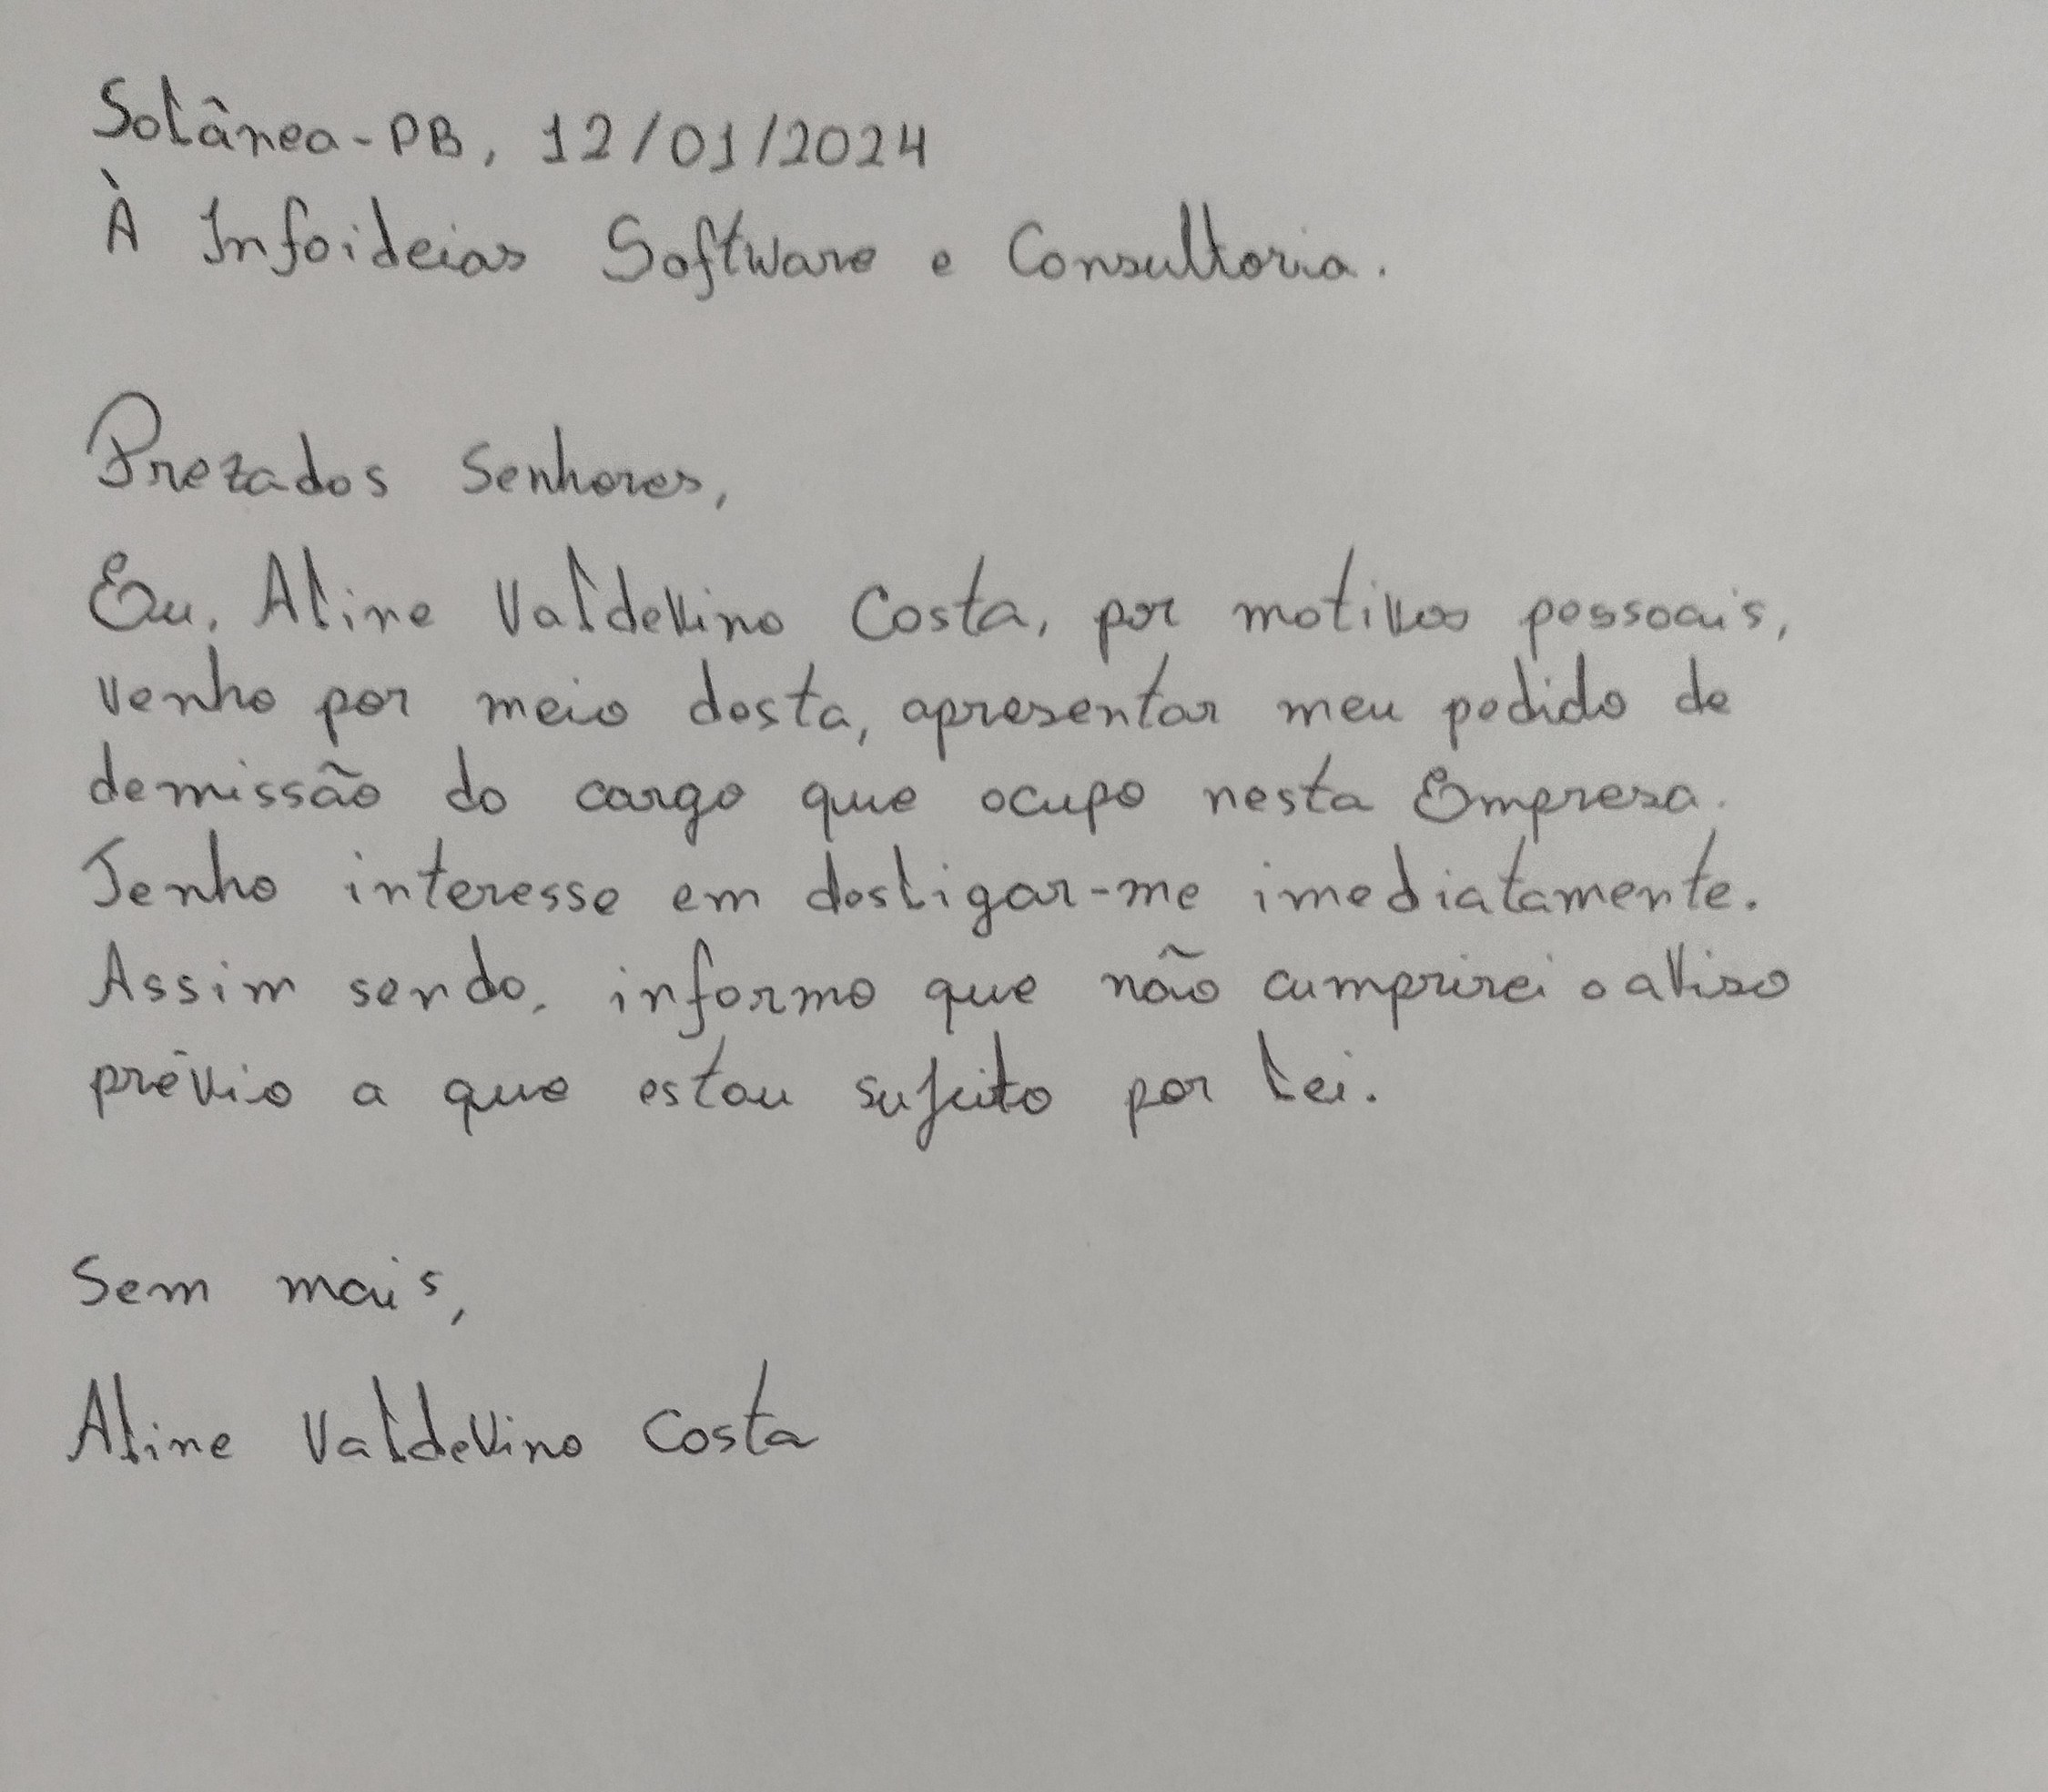 Solânea-PB, 12/01/2024
À Infoideias Software e Consultoria.
Prezados Senhores,
Eu, Aline Valdevino Costa, por motivos pessoais,
venho por meio desta, apresentar meu pedido de
demissão do cargo que ocupo nesta Empresa.
Tenho interesse em desligar-me imediatamente.
Assim sendo, informo que não cumprirei o aviso
prévio a que estou sujeito por lei.
Sem mais,
Aline Valdevino Costa